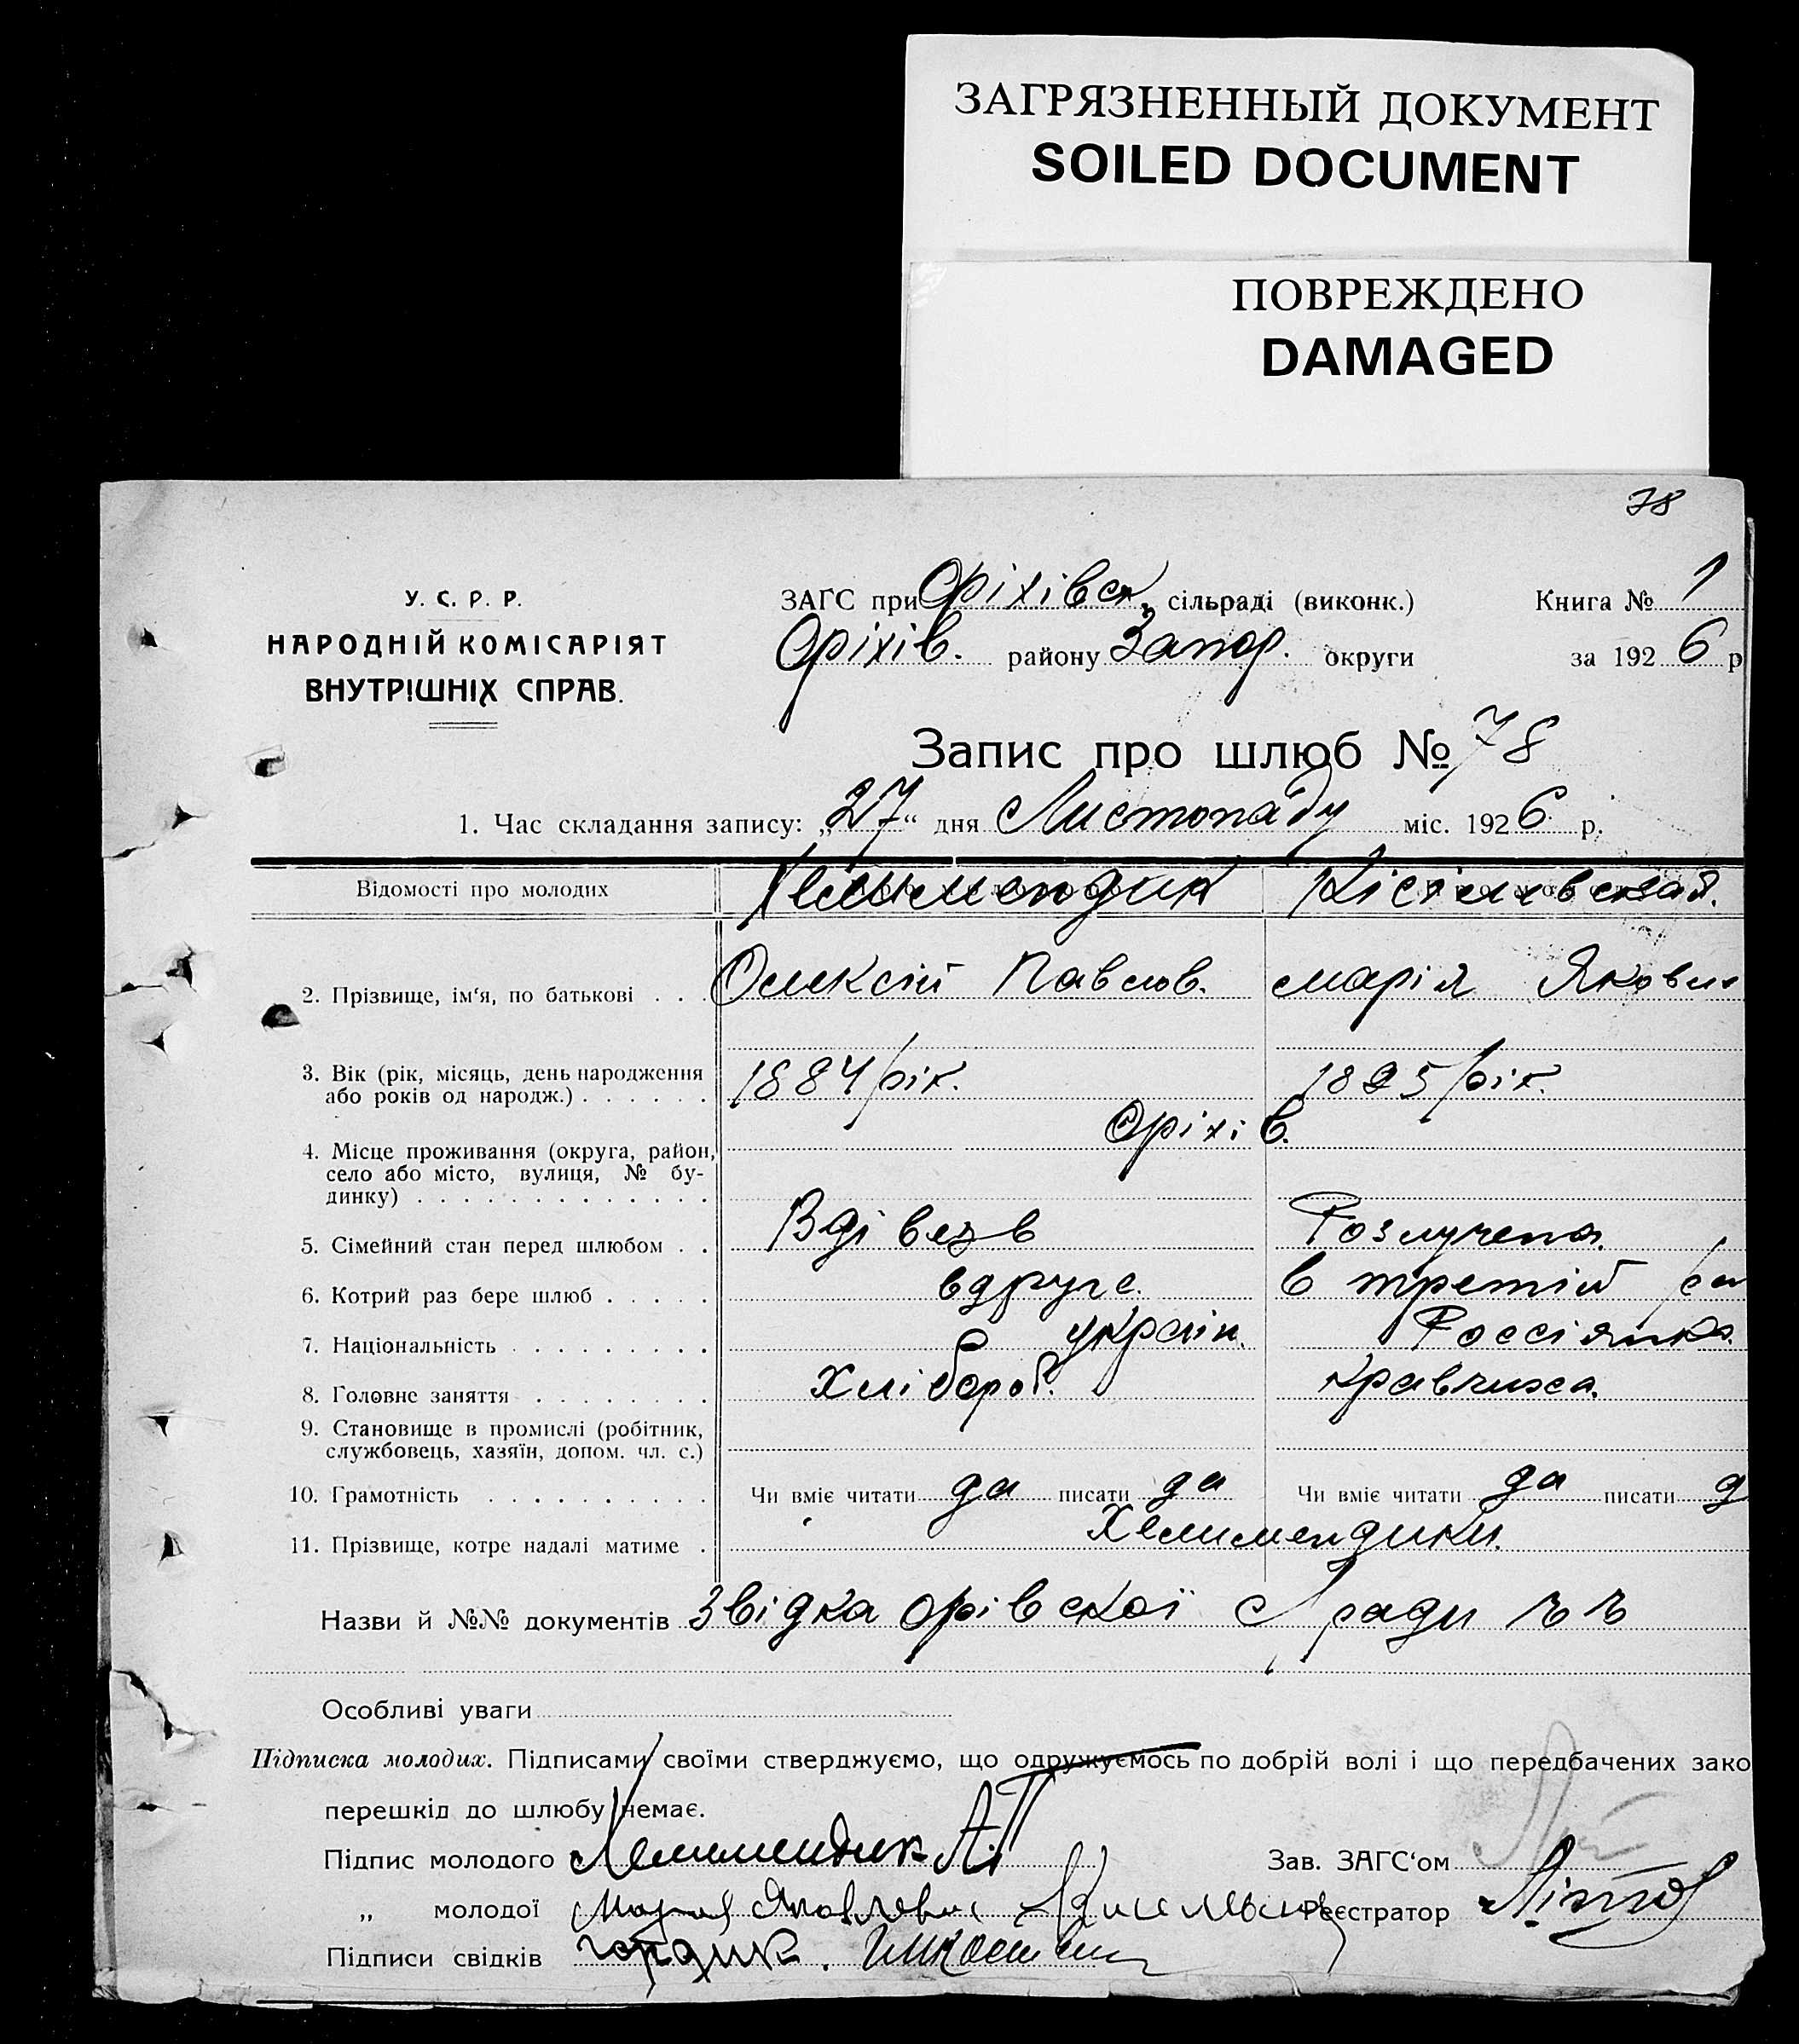 ЗАГРЯЗНЕННЫЙ ДОКУМЕНТ
SOILED DOCUMENT
ПОВРЕЖДЕНО
DAMAGED
78
У. С. Р. Р.
НАРОДНІЙ КОМІСАРІЯТ
ВНУТРІШНІХ СПРАВ.
ЗАГС при Оріхівск. сільраді (виконк.) Книга № 1
Оріхів. району Запор. округи за 1926 р
Запис про шлюб № 78
1. Час складання запису: „27“ дня Листопаду міс. 1926 р.
Відомості про молодих Хелимендик
2. Прізвище, ім‘я, по батькові . . . Олексій Павлов. Марія Яковл
3. Вік (рік, місяць, день народження
або років од народж.) . . . . . . 1884 рік. 1895 рік.
4. Місце проживання (округа, район, Оріхів.
село або місто, вулиця, № бу-
динку) . . . . . . . . . . . . .
5. Сімейний стан перед шлюбом . . Вдівезв Розлучена.
6. Котрий раз бере шлюб . . . . . вдруге. в третій ра
7. Національність . . . . . . . . . україн. Россіянка.
8. Головне заняття . . . . . . . . Хлібороб. кравчиха.
9. Становище в промислі (робітник,
службовець, хазяїн, допом. чл. с.)
10. Грамотність . . . . . . . . . . Чи вміє читати да писати да Чи вміє читати да писати д
11. Прізвище, котре надалі матиме . Хелимендики.
Назви й №№ документів Звідка орівскої с/ради
Особливі уваги
Підписка молодих. Підписами своїми стверджуємо, що одружуємось по добрій волі і що передбачених зако
перешкід до шлюбу немає.
Підпис молодого Хелимендик А.П Зав. ЗАГС‘ом
„ молодої Мария Яковлевна Реєстратор
Підписи свідків